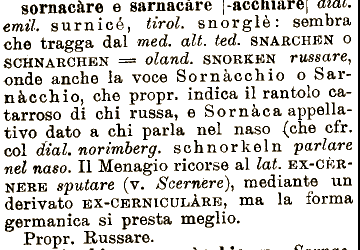 sornacàre e sarnacàre [-acchiare] dial.
emil. surnicé, tirol. snorglè: sembra
che tragga dal med. alt. ted. SNARCHEN O
SCHNARCHEN = oland. SNORKEN russare,
onde anche la voce Sornàcchio o Sar-
nàcchio, che propr. indica il rantolo ca-
tarroso di chi russa, e Sornàca appella-
tivo dato a chi parla nel naso (che cfr.
col dial. norimberg. schnorkeln parlare
nel naso. Il Menagio ricorse al lat. EX-CÈR-
NERE sputare (v. Scernere), mediante un
derivato EX-CERNICULÀRE, ma la forma
germanica si presta meglio.
Propr. Russare.